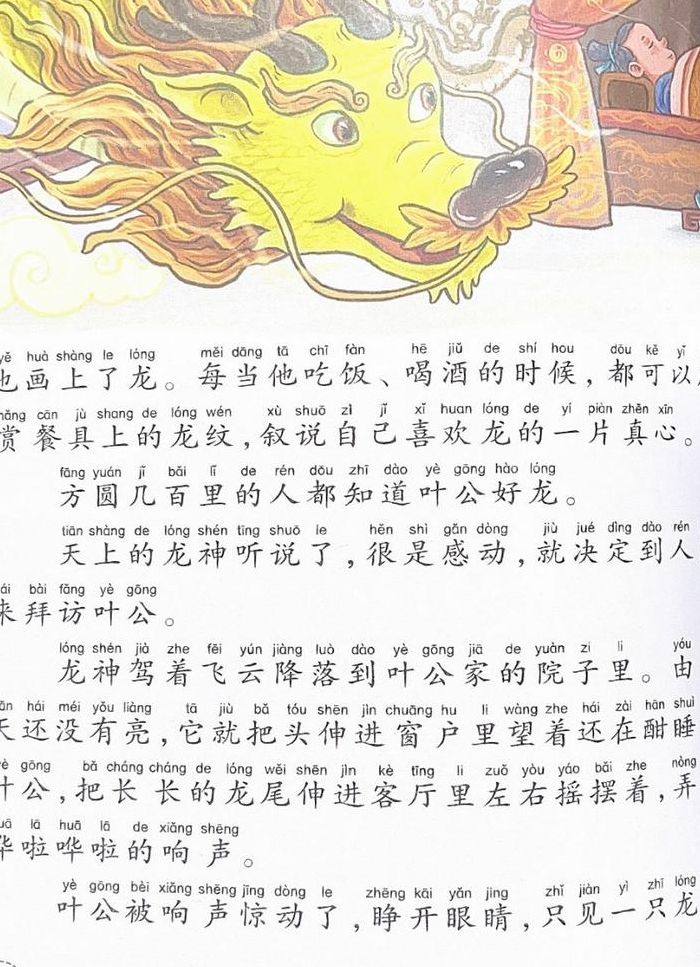 yě huà shàng le lóng měi dāng tā chī fàn hē jiǔ de shí hou dōu kě yǐ
也画上了龙。每当他吃饭、喝酒的时候，都可以
cān jù shang de lóng wén xù shuō zì jǐ xǐ huan lóng de yí piàn zhēn xīn
赏餐具上的龙纹，叙说自己喜欢龙的一片真心。
fāng yuán jǐ bǎi lǐ de rén dōu zhī dào yè gōng hào lóng
方圆几百里的人都知道叶公好龙。
tiān shàng de lóng shén tīng shuō le hěn shì gǎn dòng jiù jué dìng dào rén
天上的龙神听说了，很是感动，就决定到人
bài fǎng yè gōng
来拜访叶公。
lóng shén jià zhe fēi yún jiàng luò dào yè gōng jiā de yuàn zi li yóu
龙神驾着飞云降落到叶公家的院子里。由
hái méi yǒu liàng tā jiù bǎ tóu shēn jìn chuāng hu li wàng zhe hái zài hān shuì
天还没有亮，它就把头伸进窗户里望着还在酣睡
gōng bǎ cháng cháng de lóng wěi shēn jìn kè tīng li zuǒ yòu yáo bǎi zhe nòng
叶公，把长长的龙尾伸进客厅里左右摇摆着，弄
lā huā lā de xiǎng shēng
哗啦哗啦的响声。
yè gōng bèi xiǎng shēng jīng dòng le zhēng kāi yǎn jing zhǐ jiàn yì zhī lóng
叶公被响声惊动了，睁开眼睛，只见一只龙